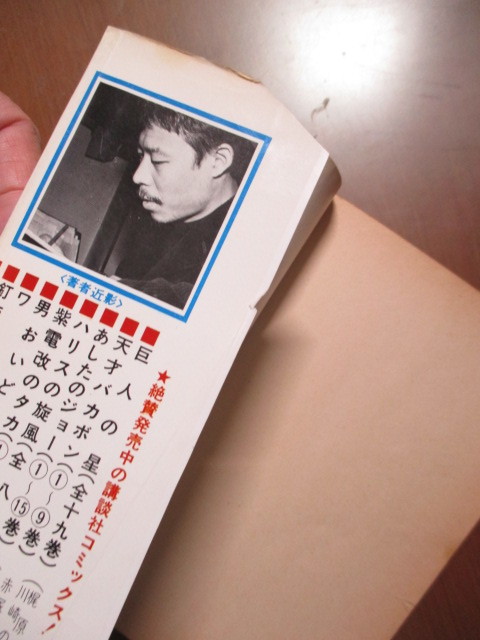 〈著者近影〉
★絶賛発売中の講談社コミックス!
■巨人の星(全十九巻)(梶原
川崎の
■天才バカボン(①〜⑨巻)赤
■あしたのジョー(①〜⑮巻)
■ハリスの旋風(全八
■紫電改のタカ(①
■男おいど
■ワ
■釘